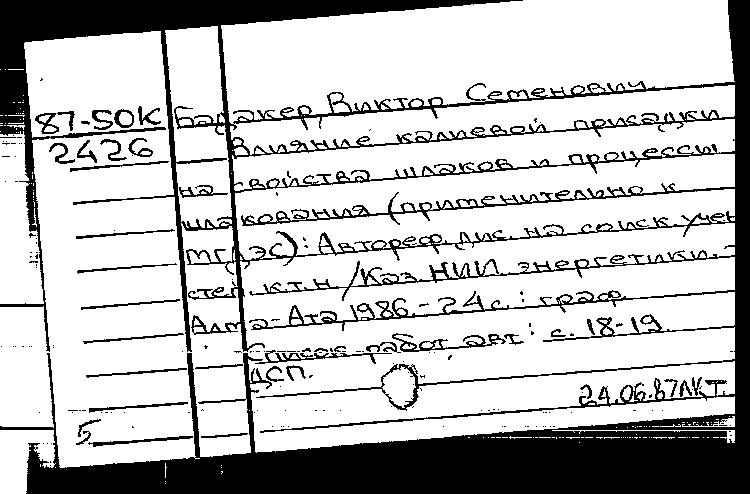 87-50К Бадакер, Виктор Семенович.
2426 Влияние калиевой присадки
на свойства шлаков и процессы
шлакования (применительно к
МГДЭС): Автореф. дис. на соиск. учен
степ. к.т.н. / Каз. НИИ энергетики. -
Алма-Ата, 1986. - 24 с. : граф.
Список работ авт : с. 18-19.
ДСП.
24.06.87 ЛКТ.
5